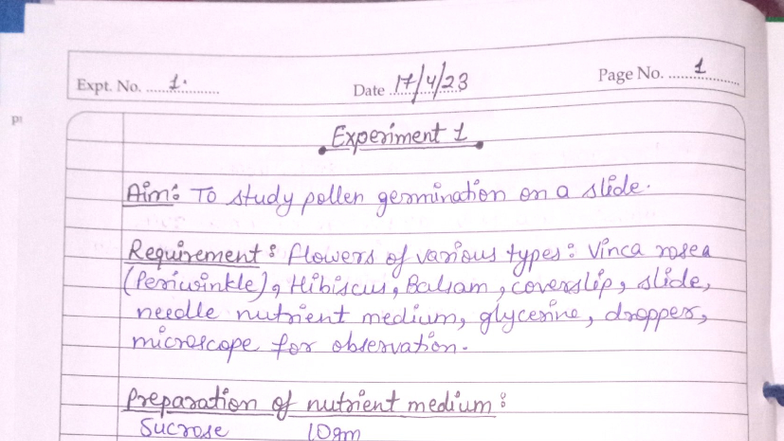 Expt. No. 1. Date 17/4/23 Page No. 1
Experiment 1
Aim: To study pollen germination on a slide.
Requirement: Flowers of various types: Vinca rosea
(Periwinkle), Hibiscus, Balsam, coverslip, slide,
needle nutrient medium, glycerine, dropper,
microscope for observation.
Preparation of nutrient medium:
Sucrose 10gm